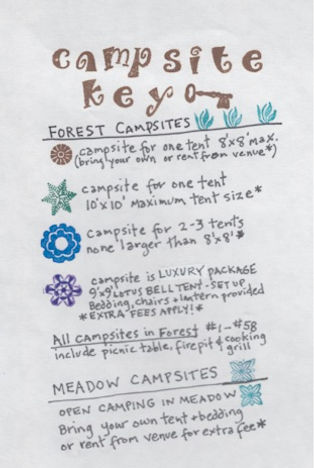 campsite
key
FOREST CAMPSITES
campsite for one tent 8'x8' max.
(bring your own or rent from venue*)
campsite for one tent
10'x10' maximum tent size*
campsite for 2-3 tents
none larger than 8'x8'*
campsite is LUXURY PACKAGE
9'x9' LOTUS BELL TENT - SET UP
Bedding, chairs + lantern provided
*EXTRA FEES APPLY!*
All Campsites in Forest #1-#58
include picnic table, firepit & cooking
grill
MEADOW CAMPSITES
OPEN CAMPING IN MEADOW
Bring your own tent + bedding
or rent from venue for extra fee*